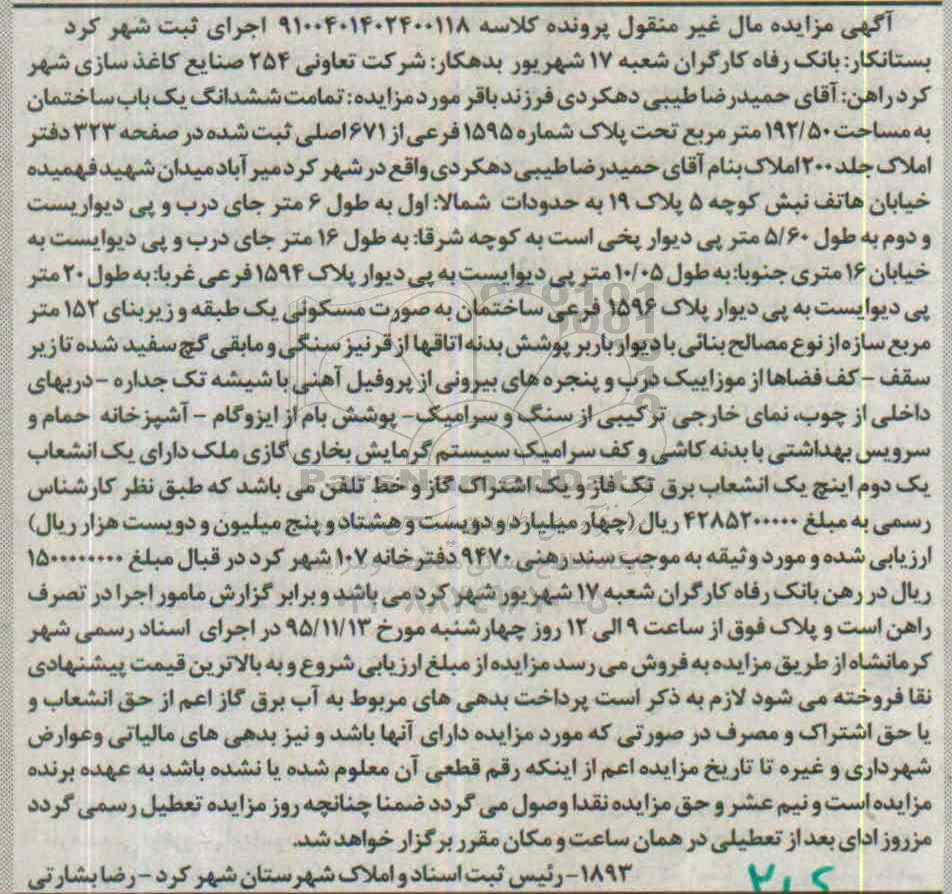 آگهی مزایده مال غیر منقول پرونده کلاسه ۹۱۰۰۴۰۱۴۰۲۴۰۰۱۱۸ اجرای ثبت شهر کرد
بستانکار: بانک رفاه کارگران شعبه ۱۷ شهریور بدهکار: شرکت تعاونی ۲۵۴ صنایع کاغذ سازی شهر
کرد راهن: آقای حمیدرضا طیبی دهکردی فرزند باقر مورد مزایده: تمامت ششدانگ یک باب ساختمان
به مساحت ۱۹۲/۵۰ متر مربع تحت پلاک شماره ۱۵۹۵ فرعی از ۶۷۱ اصلی ثبت شده در صفحه ۳۲۳ دفتر
املاک جلد ۲۰۰ املاک بنام آقای حمیدرضا طیبی دهکردی واقع در شهر کرد میر آباد میدان شهید فهمیده
خیابان هاتف نبش کوچه ۵ پلاک ۱۹ به حدودات شمالا: اول به طول ۶ متر جای درب و پی دیواریست
و دوم به طول ۵/۶۰ متر پی دیوار پخی است به کوچه شرقا: به طول ۱۶ متر جای درب و پی دیوایست به
خیابان ۱۶ متری جنوبا: به طول ۱۰/۰۵ متر پی دیوایست به پی دیوار پلاک ۱۵۹۴ فرعی غربا: به طول ۲۰ متر
پی دیوایست به پی دیوار پلاک ۱۵۹۶ فرعی ساختمان به صورت مسکونی یک طبقه و زیربنای ۱۵۲ متر
مربع سازه از نوع مصالح بنائی با دیوار باربر پوشش بدنه اتاقها از قرنیز سنگی و مابقی گچ سفید شده تا زیر
سقف - کف فضاها از موزاییک درب و پنجره های بیرونی از پروفیل آهنی با شیشه تک جداره - دربهای
داخلی از چوب، نمای خارجی ترکیبی از سنگ و سرامیک - پوشش بام از ایزوگام - آشپزخانه حمام و
سرویس بهداشتی با بدنه کاشی و کف سرامیک سیستم گرمایش بخاری گازی ملک دارای یک انشعاب
یک دوم اینچ یک انشعاب برق تک فاز و یک اشتراک گاز و خط تلفن می باشد که طبق نظر کارشناس
رسمی به مبلغ ۴۲۸۵۲۰۰۰۰۰ ریال (چهار میلیارد و دویست و هشتاد و پنج میلیون و دویست هزار ریال)
ارزیابی شده و مورد وثیقه به موجب سند رهنی ۹۴۷۰ دفترخانه ۱۰۷ شهر کرد در قبال مبلغ ۱۵۰۰۰۰۰۰۰۰
ریال در رهن بانک رفاه کارگران شعبه ۱۷ شهریور شهر کرد می باشد و برابر گزارش مامور اجرا در تصرف
راهن است و پلاک فوق از ساعت ۹ الی ۱۲ روز چهارشنبه مورخ ۹۵/۱۱/۱۳ در اجرای اسناد رسمی شهر
کرمانشاه از طریق مزایده به فروش می رسد مزایده از مبلغ ارزیابی شروع و به بالاترین قیمت پیشنهادی
نقا فروخته می شود لازم به ذکر است پرداخت بدهی های مربوط به آب برق گاز اعم از حق انشعاب و
یا حق اشتراک و مصرف در صورتی که مورد مزایده دارای آنها باشد و نیز بدهی های مالیاتی وعوارض
شهرداری و غیره تا تاریخ مزایده اعم از اینکه رقم قطعی آن معلوم شده یا نشده باشد به عهده برنده
مزایده است و نیم عشر و حق مزایده نقدا وصول می گردد ضمنا چنانچه روز مزایده تعطیل رسمی گردد
مزروز ادای بعد از تعطیلی در همان ساعت و مکان مقرر برگزار خواهد شد.
۱۸۹۳- رئیس ثبت اسناد و املاک شهرستان شهر کرد - رضا بشارتی